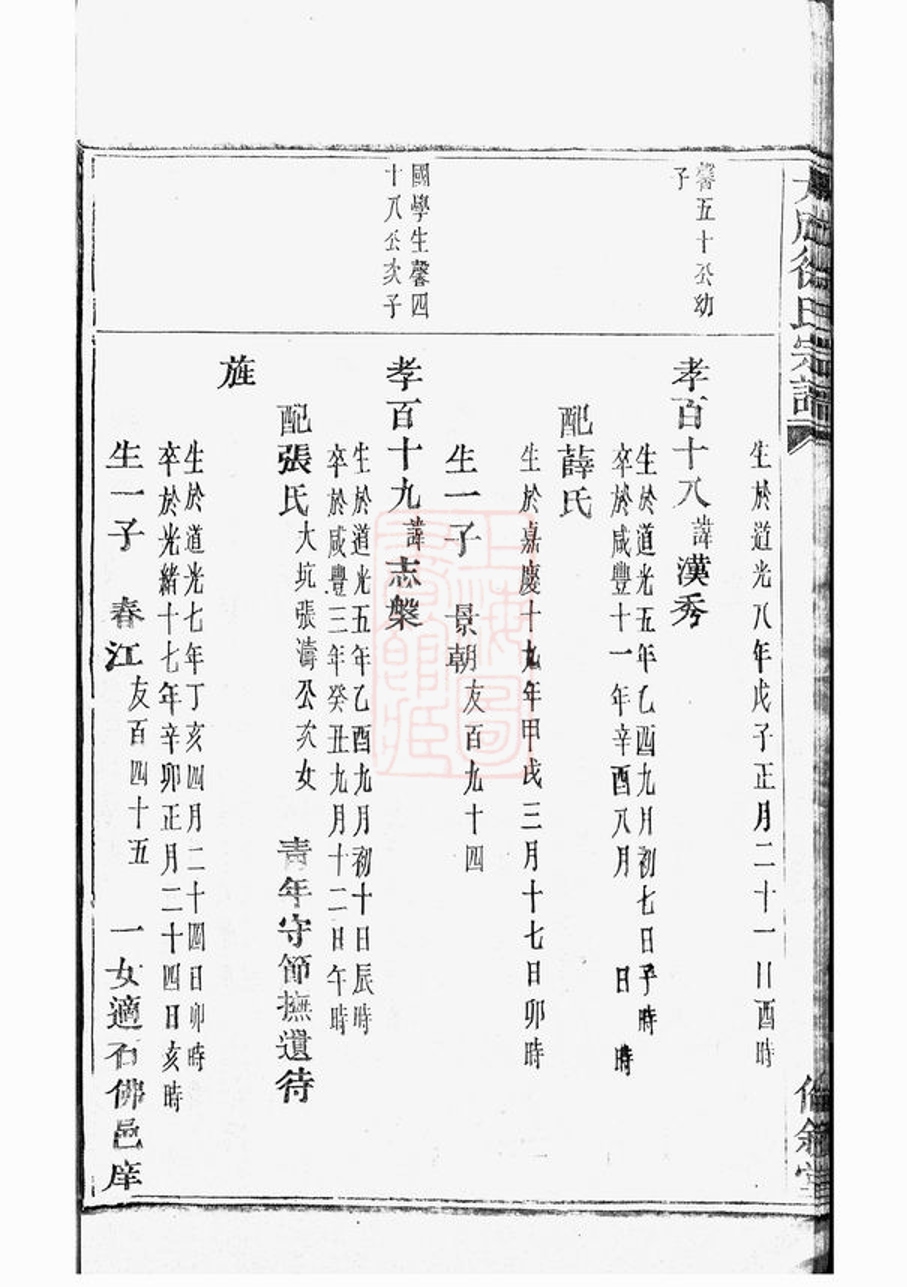 徐氏宗譜
倫敘堂
生於道光八年戊子正月二十一日酉時
馨五十公幼
子
孝百十八諱漢秀
生於道光五年乙酉九月初七日子時
卒於咸豐十一年辛酉八月 日 時
配薛氏
生於嘉慶十九年甲戌三月十七日卯時
生一子 景朝友百九十四
國學生馨四
十八公次子
孝百十九諱志槃
生於道光五年乙酉九月初十日辰時
卒於咸豐三年癸丑九月十二日午時
配張氏大坑張濤公次女 青年守節撫遺待
旌
生於道光七年丁亥四月二十四日卯時
卒於光緒十七年辛卯正月二十四日亥時
生一子 春江友百四十五 一女適石佛邑庠
上海圖書館藏